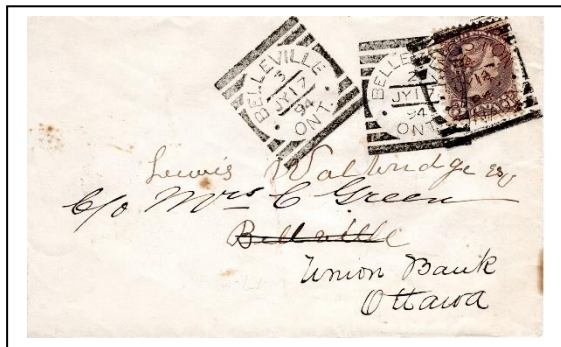 BELLEVILLE
3
JY 17
94
ONT.
BELLEV
2
JY 17
94
ONT.
14
Lewis Wallbridge Esq
c/o Mrs C Green
Bellville
Union Bank
Ottawa